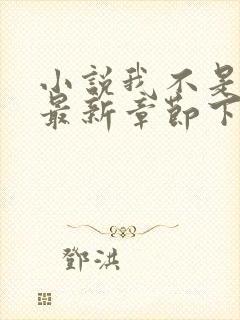 小説我不是
最新章節下
鄧洪